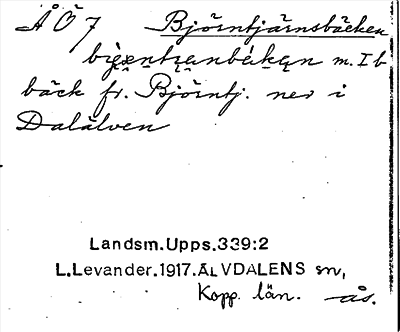 ÅÖ7 Björntjärnsbäcken
m. I b
bäck fr. Björntj. ner i
Dalälven
Landsm.Upps.339:2
L.Levander.1917.ÄLVDALENS sn,
Kopp. län. ås.